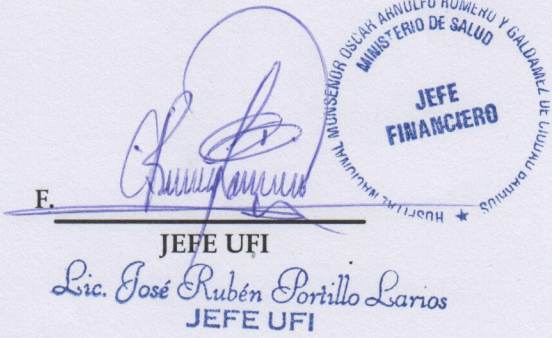 HOSPITAL NACIONAL MONSEÑOR OSCAR ARNULFO ROMERO Y GALDAMEZ DE CIUDAD BARRIOS
MINISTERIO DE SALUD
JEFE
FINANCIERO
F.
JEFE UFI
Lic. José Rubén Portillo Larios
JEFE UFI